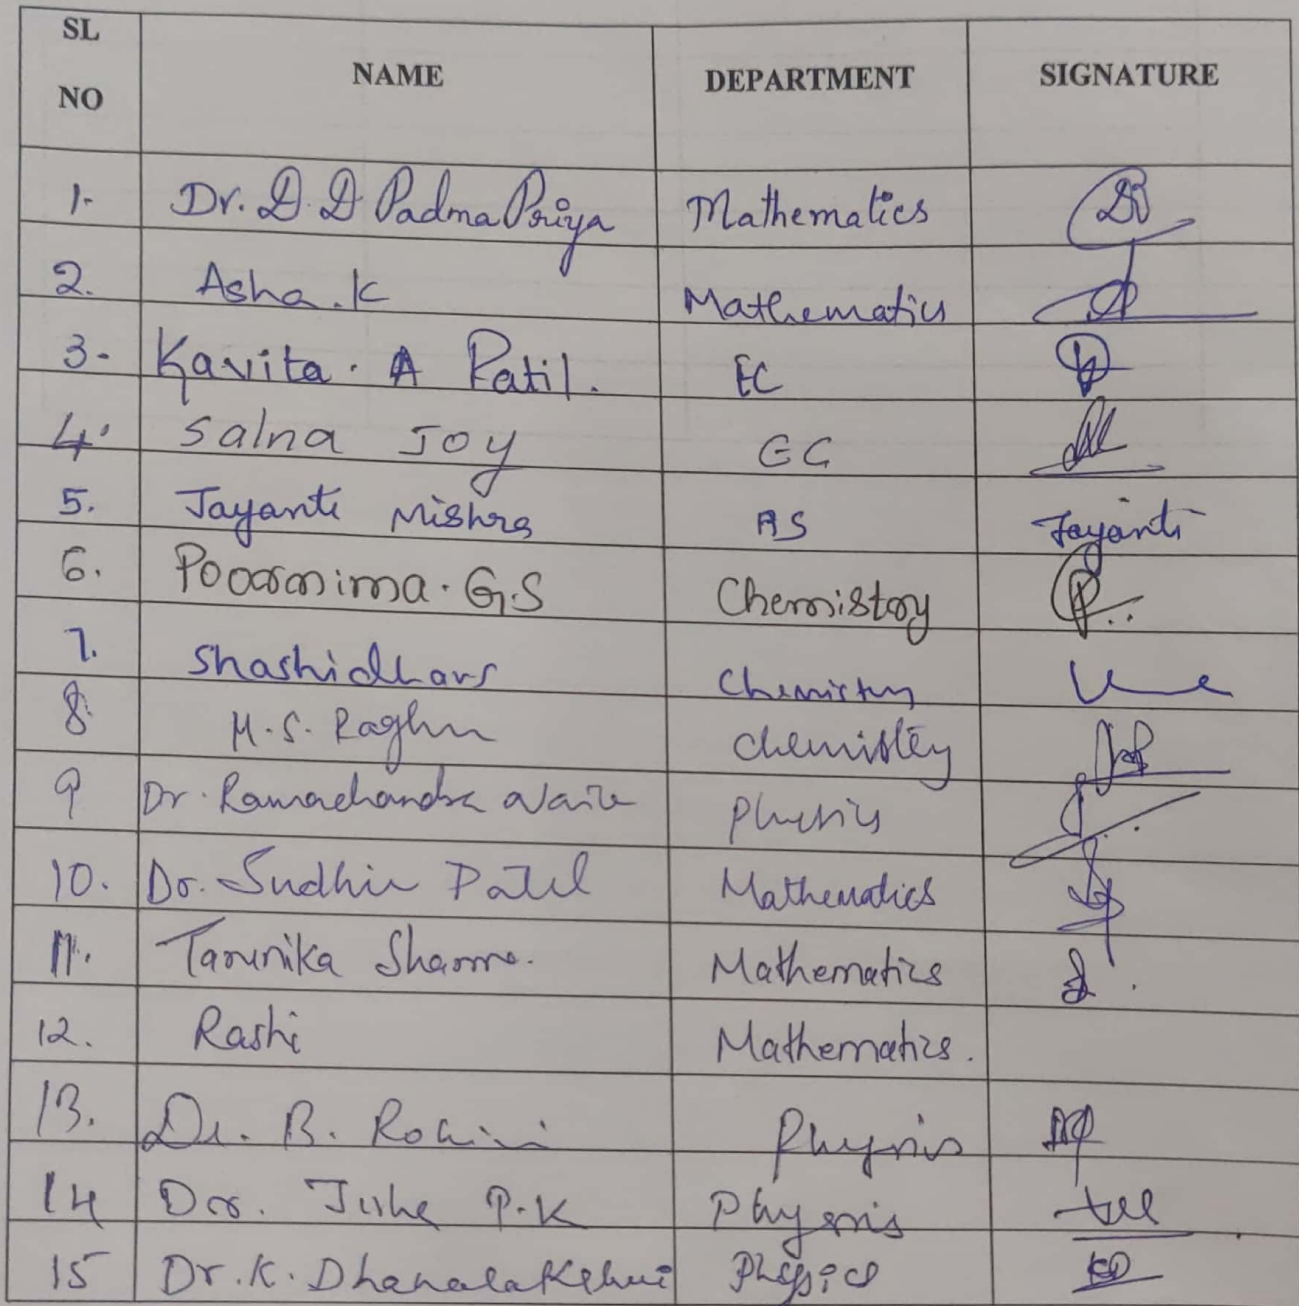 SL NO NAME DEPARTMENT SIGNATURE
1. Dr. D. D Padma Priya Mathematics
2. Asha.K Mathematics
3. Kavita. A Patil. EC
4. Salna Joy EC
5. Jayanti Mishra AS Jayanti
6. Poornima. G.S Chemistry
7. Shashidhar S Chemistry
8. M.S. Raghu chemistry
9 Dr. Ramachandra Naik Physics
10. Dr. Sudhir Patil Mathematics
11. Tarunika Sharma. Mathematics
12. Rashi Mathematics.
13. Dr. B. Rohini Physics
14 Dr. P.K Physics
15 Dr. K. Dhanalakshmi Physics